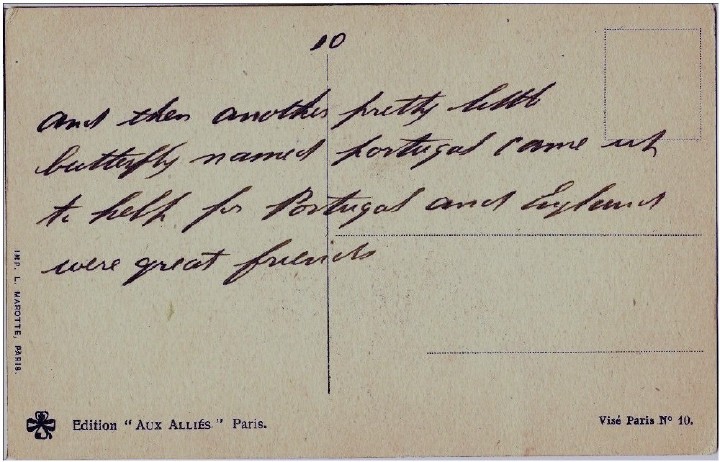 10
and then another pretty little
butterfly named portugal came up
to help for Portugal and England
were great friends
IMP. L. MAROTTE, PARIS.
Edition "AUX ALLIÉS" Paris.
Visé Paris Nº 10.